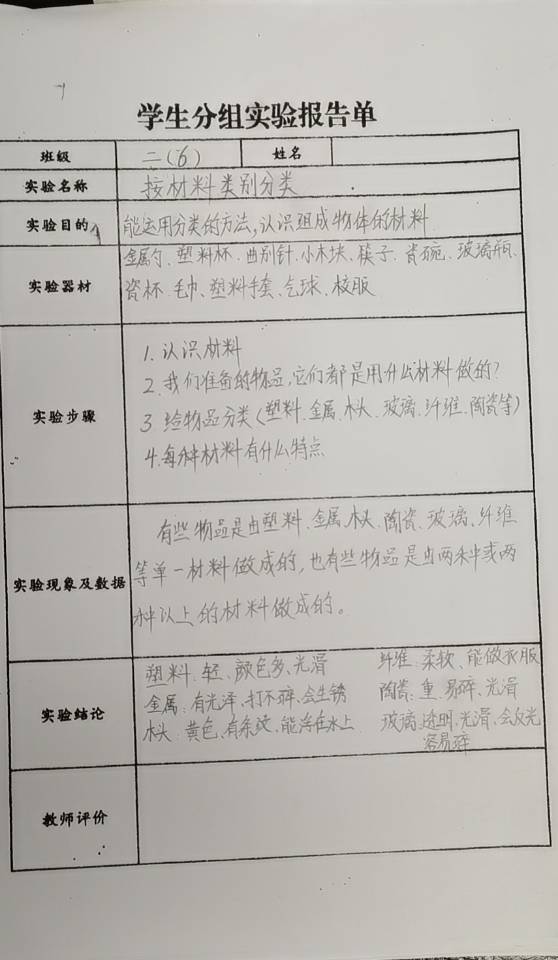 学生分组实验报告单
班级 二(6) 姓名
实验名称 按材料类别分类
实验目的 能运用分类的方法,认识组成物体的材料
实验器材 金属勺、塑料杯、曲别针、小木块、筷子、瓷碗、玻璃瓶、
瓷杯、毛巾、塑料手套、气球、校服
实验步骤
1. 认识材料
2. 我们准备的物品,它们都是用什么材料做的?
3. 给物品分类(塑料、金属、木头、玻璃、纤维、陶瓷等)
4. 每种材料有什么特点
实验现象及数据
有些物品是由塑料、金属、木头、陶瓷、玻璃、纤维
等单一材料做成的,也有些物品是由两种或两
种以上的材料做成的。
实验结论
塑料:轻、颜色多、光滑
金属:有光泽,打不碎,会生锈
木头:黄色、有条纹,能浮在水上
纤维:柔软、能做衣服
陶瓷:重、易碎、光滑
玻璃:透明、光滑、会反光
容易碎
教师评价